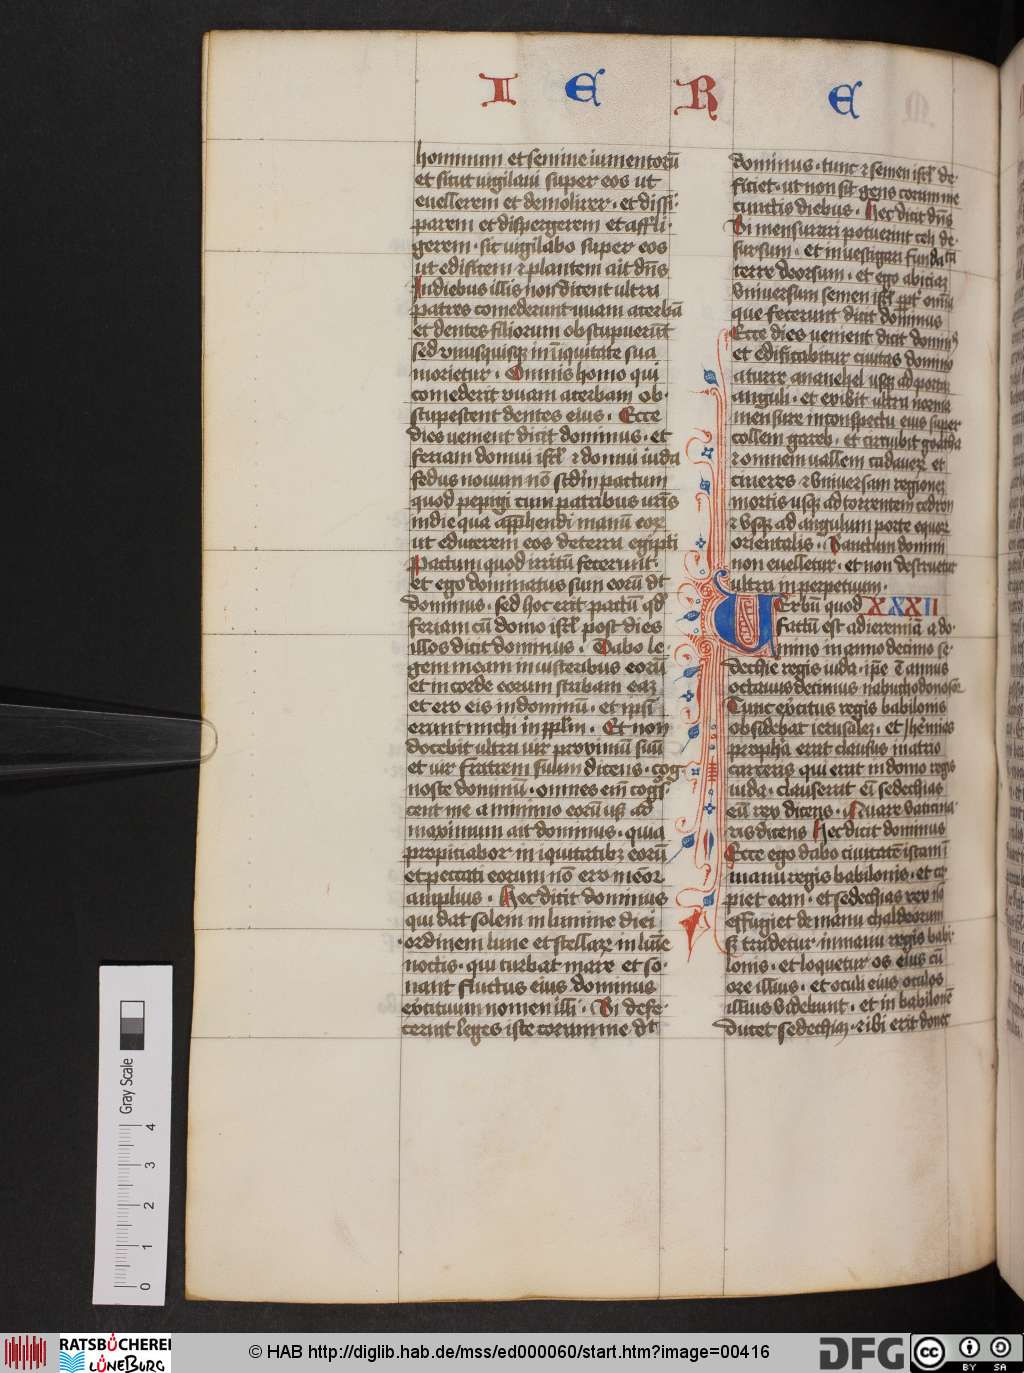 I E R E
hominum et semine iumentorū
et sicut vigilaui super eos ut
euellerem et demolirer · et dissi·
parem et dispergerem et affli·
gerem · sic vigilabo super eos
ut edificem ⁊ plantem ait dn̄s
In diebus illis non dicent ultra
patres comederunt uuam acerbā
et dentes filiorum obstupuerūt
sed vnusquisqꝫ in īiquitate sua
morietur · Omnis homo qui
comederit vuam acerbam ob·
stupescent dentes eius · Ecce
dies uenient dicit dominus · et
feriam domui isrl̄ ⁊ domui iuda
fedus nouum nō scd̄m pactum
quod pepigi cum patribus uris̄
in die qua app̄hendi manū eoꝝ
ut educerem eos de terra egipti
Pactum quod irritū fecerunt·
et ego dominatus sum eorū dt̄
dominus · sed hoc erit pactū qd̄
feriam cū domo isrl̄ post dies
illos dicit dominus · Dabo le·
gem meam in uisceribus eorū
et in corde eorum scribam eaꝫ
et ero eis in dominū · et ipsi
erunt michi in ppl̄m · Et non
docebit ultra uir proximū suū
et uir fratrem suum dicens · cog·
nosce dominū · omnes em̄ cogs̄·
cent me a minimo eorū usꝫ ad
maximum ait dominus · quia
propiciabor in iquitatibꝫ eorū
et peccati eorum nō ero meōr
amplius · Hec dicit dominus
qui dat solem in lumine diei
·ordinem lune et stellaꝝ in lūe
noctis · qui turbat mare et so·
nant fluctus eius dominus
exercituum nomen illi · Si defe·
cerint leges iste coram me dt̄
dominus · tunc ⁊ semen isrl̄ de·
ficiet · ut non sit gens coram me
cunctis diebus · Hec dicit dn̄s
Si mensurari potuerint celi de·
sursum · et inuestigari fundatā
terre deorsum · et ego abiciaꝫ
vniuersum semen isrl̄ ppt̄ om̄ia
que fecerunt dicit dominus
Ecce dies uenient dicit dominꝰ
et edificabitur ciuitas domino
a turre ananehel usqꝫ ad portā
anguli · et exibit ultra norma
mensure in conspectu eius super
collem gareb · et circuibit goatha
⁊ omnem uallem cadaueꝝ et
cineres ⁊ vniuersam regionem
mortis usqꝫ ad torrentem cedron
⁊ vsqꝫ ad angulum porte equoꝝ
orientalis · Sanctum domini
non euelletur · et non destruetur
ultra in perpetuum ·
Uerbū quod XXXII
factū est ad ieremiā a do·
mino in anno decimo se·
dechie regis iuda · ip̄e ē annus
octauus decimus nabuchodonosor
Tunc exc̄itus regis babilonis
obsidebat ierusaleꝫ · et Jheremias
propha erat clausus in atrio
carceris qui erat in domo regis
iuda · clauserat eī sedechias
eū rex dicens · Quare vaticina·
ris dicens Hec dicit dominus
Ecce ego dabo ciuitatē istam ī
manu regis babilonis · et ca·
piet eam · et sedechias rex iū
effugiet de manu chaldeorum
sꝫ tradetur in manu regis babi·
lonis · et loquetur os eius cū
ore illius · et oculi eius oculos
illius videbunt · et in babilonē
ducet sedechiaꝫ · ⁊ ibi erit donec
Gray Scale
4
3
2
1
0
RATSBÜCHEREI
LÜNEBURG
© HAB http://diglib.hab.de/mss/ed000060/start.htm?image=00416
DFG
cc BY SA